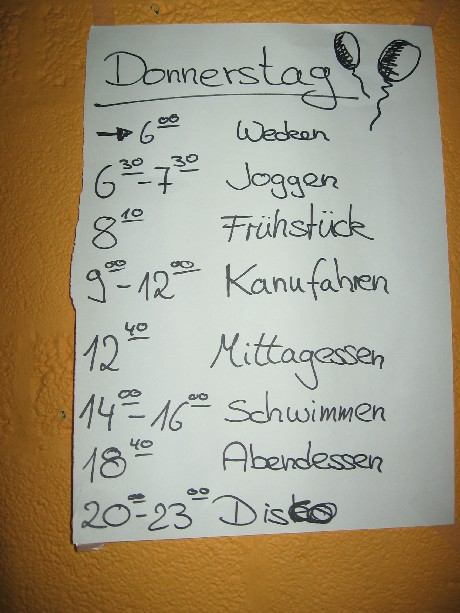 Donnerstag
→ 6⁰⁰ Wecken
6³⁰-7³⁰ Joggen
8¹⁰ Frühstück
9⁰⁰-12⁰⁰ Kanufahren
12⁴⁰ Mittagessen
14⁰⁰-16⁰⁰ Schwimmen
18⁴⁰ Abendessen
20⁰⁰-23⁰⁰ Disko